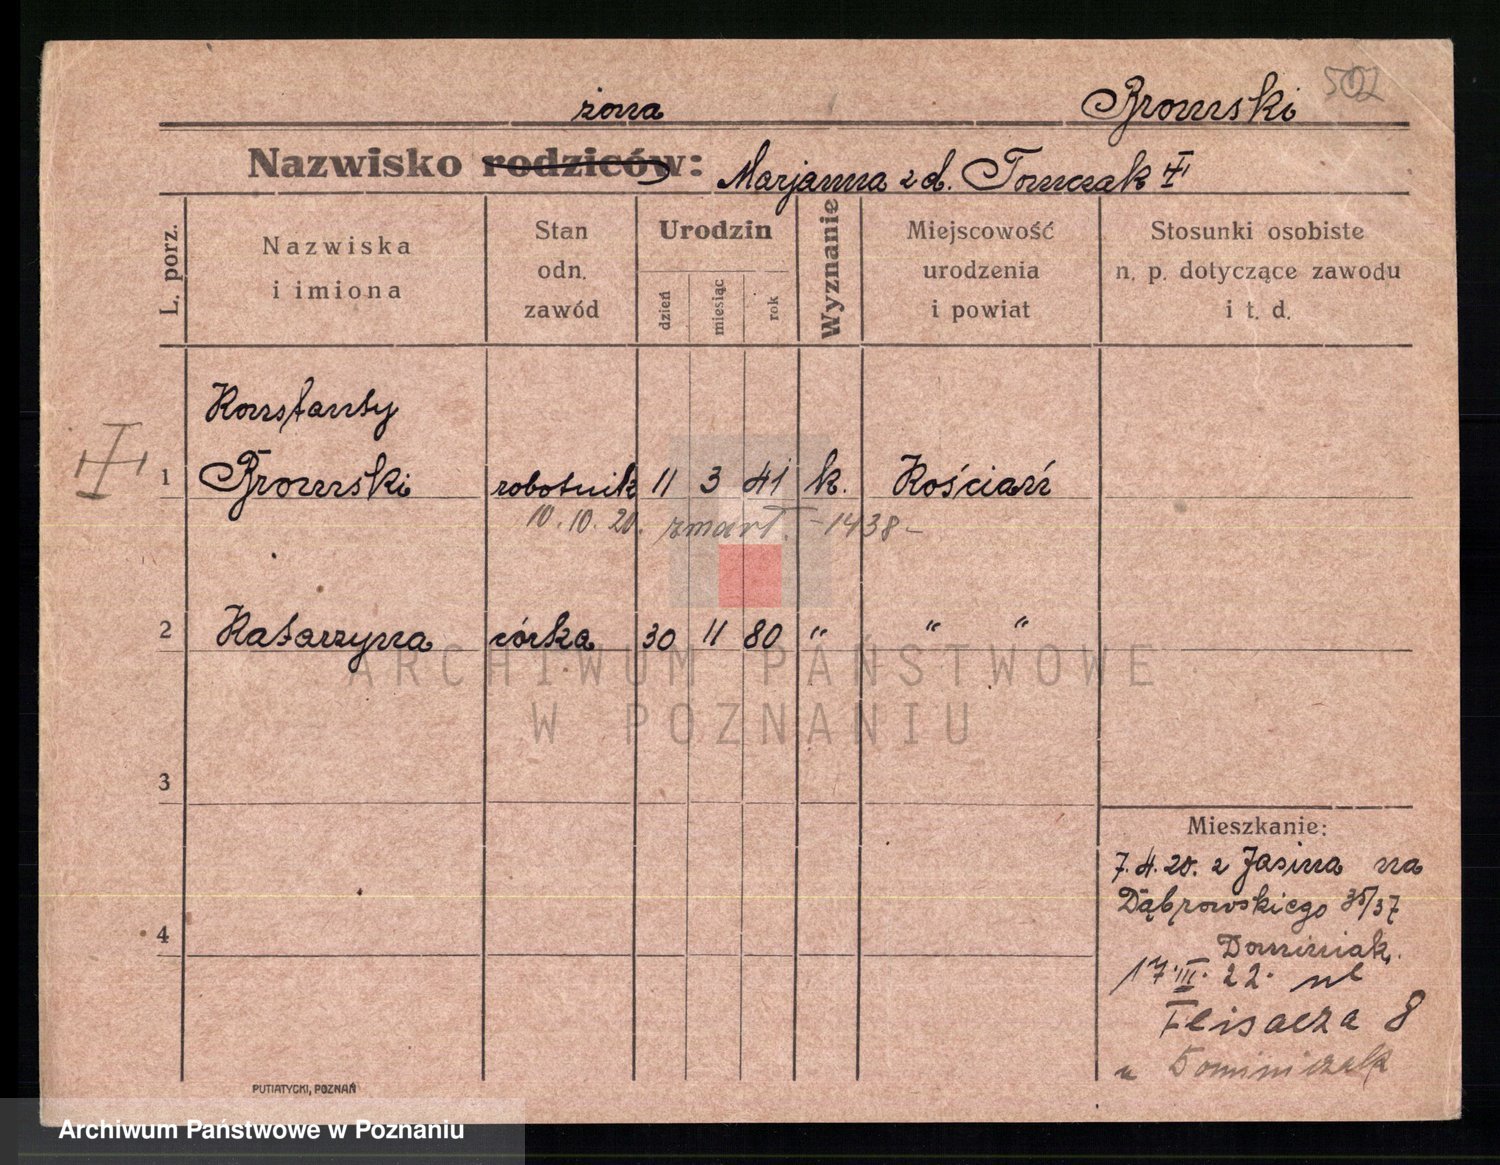 502
żona Bromski
Nazwisko rodziców: Marjanna z d. Tomczak
L. porz.
Nazwiska
i imiona
Stan
odn.
zawód
Urodzin
dzień
miesiąc
rok
Wyznanie
Miejscowość
urodzenia
i powiat
Stosunki osobiste
n. p. dotyczące zawodu
i t. d.
Konstanty
1 Bromski robotnik 11 3 41 k. Kościań
10.10.20. zmarł. -1438-
2 Katarzyna córka 30 11 80 " " "
3
4
Mieszkanie:
7.4.20. z Jasina na
Dąbrowskiego 35/37
Dominiak.
17.III.22. ul
Flisacza 8
u Dominiczak
PUTIATYCKI, POZNAŃ
ARCHIWUM PAŃSTWOWE
W POZNANIU
Archiwum Państwowe w Poznaniu